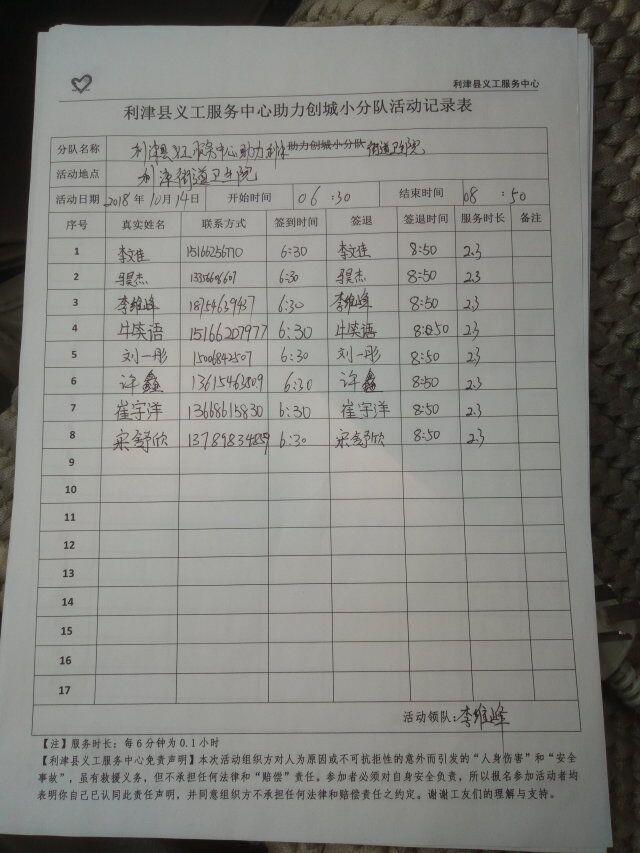 利津县义工服务中心
利津县义工服务中心助力创城小分队活动记录表
分队名称 利津县义工服务中心助力利津助力创城小分队街道卫生院
活动地点 利津街道卫生院
活动日期 2018年10月14日 开始时间 06:30 结束时间 08:50
序号 真实姓名 联系方式 签到时间 签退 签退时间 服务时长 备注
1 李文佳 6:30 李文佳 8:50 2.3
2 杰 6:30 杰 8:50 2.3
3 李维峰 18754639437 6:30 李维峰 8:50 2.3
4 牛笑语 15166207977 6:30 牛笑语 8:50 2.3
5 刘一彤 15006842507 6:30 刘一彤 8:50 2.3
6 许鑫 13615463809 6:30 许鑫 8:50 2.3
7 崔宇洋 13668615830 6:30 崔宇洋 8:50 2.3
8 宋舒欣 6:30 宋舒欣 8:50 2.3
9
10
11
12
13
14
15
16
17
活动领队:李维峰
【注】服务时长:每6分钟为0.1小时
【利津县义工服务中心免责声明】本次活动组织方对人为原因或不可抗拒性的意外而引发的“人身伤害”和“安全
事故”,虽有救援义务,但不承担任何法律和“赔偿”责任。参加者必须对自身安全负责,所以报名参加活动者均
表明你自己已认同此责任声明,并同意组织方不承担任何法律和赔偿责任之约定。谢谢工友们的理解与支持。